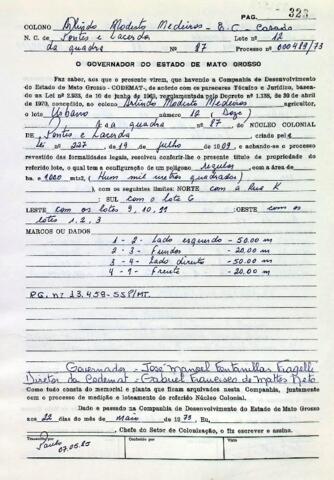 PAG. 323
COLONO Arlindo Modesto Medeiros - B.C. Casado
N. C. de Pontes e Lacerda Lote nº 12
da quadra Nº 87 Processo nº 000413/73
O GOVERNADOR DO ESTADO DE MATO GROSSO
Faz saber, aos que a presente virem, que havendo a Companhia de Desenvolvimento
do Estado de Mato Grosso - CODEMAT, de acordo com os pareceres Técnico e Jurídico, basea-
do na Lei nº 2.293, de 10 de junho de 1963, regulamentada pelo Decreto nº 1.138, de 29 de abril
de 1970, concedido, ao colono Arlindo Modesto Medeiros agricultor,
o lote Urbano número 12 (Doze)
da quadra nº 87 DO NÚCLEO COLONIAL
DE Pontes e Lacerda criado pela
Lei nº 227, de 19 de julho de 1909, e achando-se o processo
revestido das formalidades legais, resolveu conferir-lhe o presente título de propriedade do
referido lote, o qual tem a configuração de um polígono regular com a área de
ha. e 1000 mts2, (Hum mil metros quadrados)
), com os seguintes limites: NORTE com a Rua K
; SUL com o lote 6
LESTE com os lotes 9, 10, 11 ;OESTE com os
lotes 1, 2, 3
MARCOS OU DADOS
1 - 2 - Lado esquerdo - 50.00 m
2 - 3 - Fundos - 20.00 m
3 - 4 - Lado direito - 50.00 m
4 - 1 - Frente - 20.00 m
R.G. nº 13.459-SSP/MT.
Governador - José Manoel Fontanillas Fragelli
Diretor da Codemat - Gabriel Francisco de Mattos Neto
Como tudo consta do memorial e planta que ficam arquivados nesta Companhia, juntamente
com o processo de medição e loteamento do referido Núcleo Colonial.
Dado e passado na Companhia de Desenvolvimento do Estado de Mato Grosso
aos 22 dias do mês de maio de 1973, Eu,
, Chefe do Setor de Colonização, o fiz escrever e assino.
Transcrito por Conferido por Visto
07.05.85